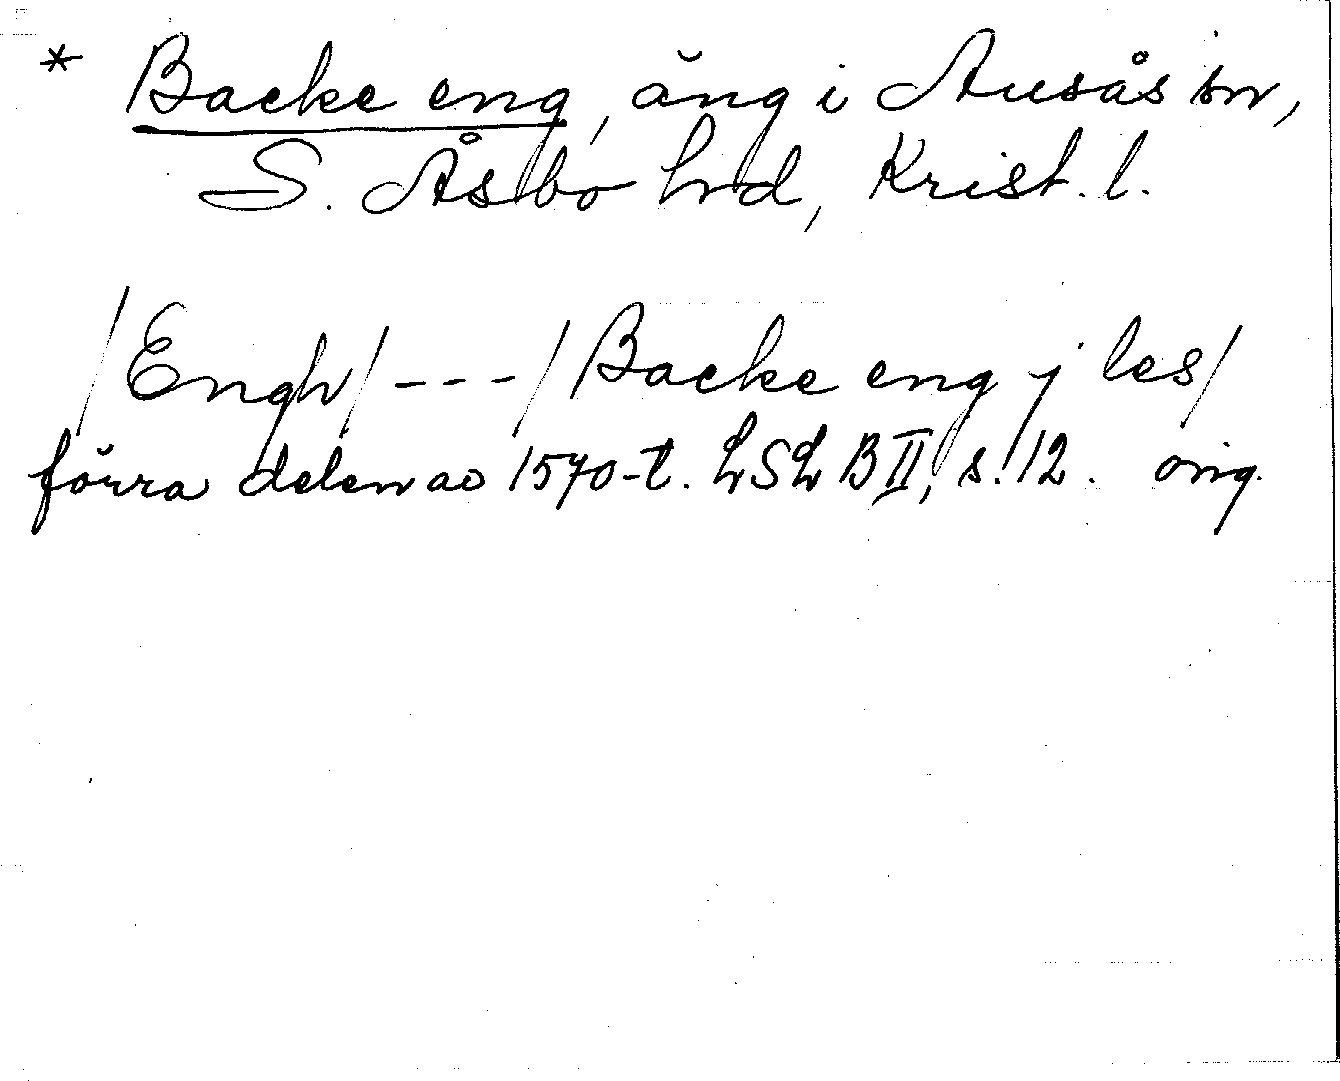 * Backe eng, äng i Ausås sn,
S. Åsbo hd, Krist. l.
/Engh/ --- /Backe eng j les/
förra delen av 1570-t. LSL B II, s. 12. orig.